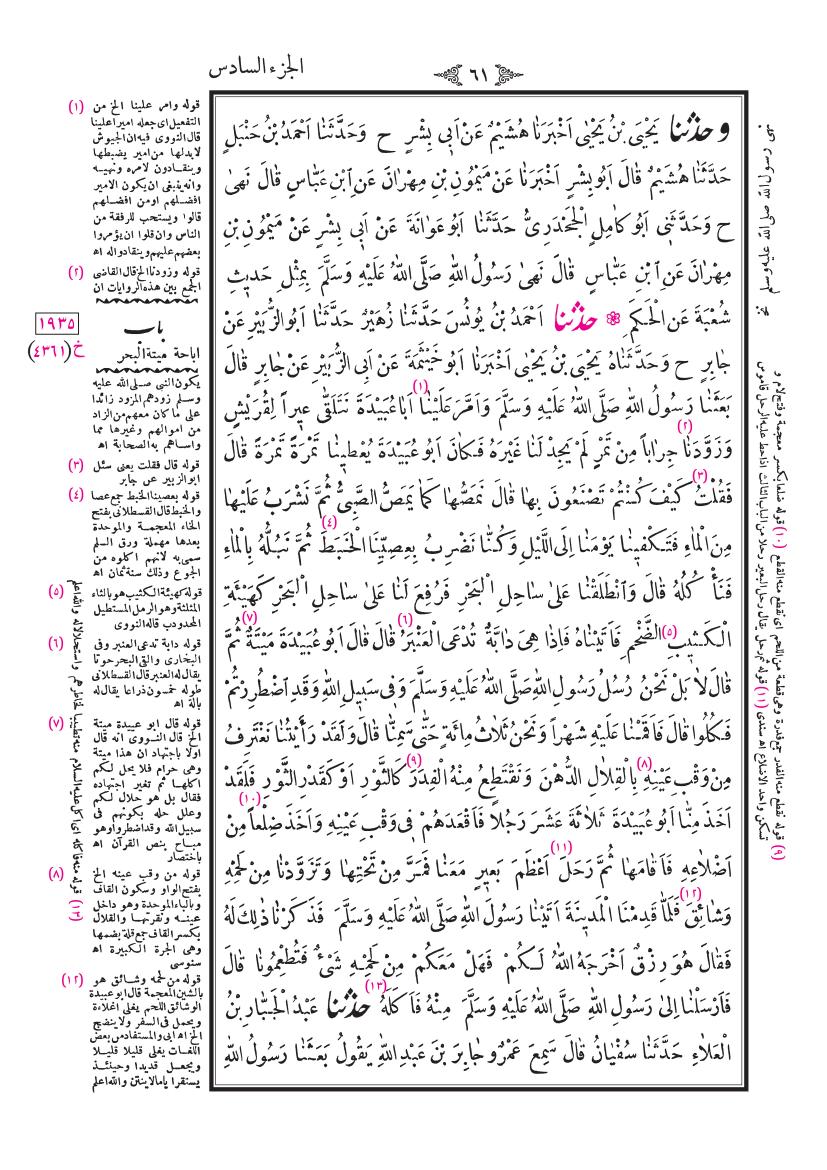 الجزء السادس
٦١
وحدثنا يَحْيَى بْنُ يَحْيٰى اَخْبَرَنَا هُشَيْمٌ عَنْ اَبِى بِشْرٍ ح وَحَدَّثَنَا اَحْمَدُ بْنُ حَنْبَلٍ
حَدَّثَنَا هُشَيْمٌ قَالَ اَبُو بِشْرٍ اَخْبَرَنَا عَنْ مَيْمُونِ بْنِ مِهْرَانَ عَنِ ابْنِ عَبَّاسٍ قَالَ نَهٰى
ح وَحَدَّثَنِى اَبُو كَامِلٍ الْجَحْدَرِىُّ حَدَّثَنَا اَبُو عَوَانَةَ عَنْ اَبِى بِشْرٍ عَنْ مَيْمُونِ بْنِ
مِهْرَانَ عَنِ ابْنِ عَبَّاسٍ قَالَ نَهٰى رَسُولُ اللهِ صَلَّى اللهُ عَلَيْهِ وَسَلَّمَ بِمِثْلِ حَدِيثِ
شُعْبَةَ عَنِ الْحَكَمِ ❁ حدثنا اَحْمَدُ بْنُ يُونُسَ حَدَّثَنَا زُهَيْرٌ حَدَّثَنَا اَبُو الزُّبَيْرِ عَنْ
جَابِرٍ ح وَحَدَّثَنَاهُ يَحْيَى بْنُ يَحْيٰى اَخْبَرَنَا اَبُو خَيْثَمَةَ عَنْ اَبِى الزُّبَيْرِ عَنْ جَابِرٍ قَالَ
بَعَثَنَا رَسُولُ اللهِ صَلَّى اللهُ عَلَيْهِ وَسَلَّمَ وَاَمَّرَ عَلَيْنَا (١) اَبَا عُبَيْدَةَ نَتَلَقّٰى عِيراً لِقُرَيْشٍ
وَزَوَّدَنَا (٢) جِرَاباً مِنْ تَمْرٍ لَمْ يَجِدْ لَنَا غَيْرَهُ فَكَانَ اَبُو عُبَيْدَةَ يُعْطِينَا تَمْرَةً تَمْرَةً قَالَ
فَقُلْتُ (٣) كَيْفَ كُنْتُمْ تَصْنَعُونَ بِهَا قَالَ نَمَصُّهَا كَمَا يَمَصُّ الصَّبِىُّ ثُمَّ نَشْرَبُ عَلَيْهَا
مِنَ الْمَاءِ فَتَكْفِينَا يَوْمَنَا اِلَى اللَّيْلِ وَكُنَّا نَضْرِبُ بِعِصِيِّنَا الْخَبَطَ (٤) ثُمَّ نَبُلُّهُ بِالْمَاءِ
فَنَأْكُلُهُ قَالَ وَانْطَلَقْنَا عَلٰى سَاحِلِ الْبَحْرِ فَرُفِعَ لَنَا عَلٰى سَاحِلِ الْبَحْرِ كَهَيْئَةِ
الْكَثِيبِ (٥) الضَّخْمِ فَاَتَيْنَاهُ فَاِذَا هِىَ دَابَّةٌ تُدْعَى الْعَنْبَرُ (٦) قَالَ قَالَ اَبُو عُبَيْدَةَ مَيْتَةٌ (٧) ثُمَّ
قَالَ لَا بَلْ نَحْنُ رُسُلُ رَسُولِ اللهِ صَلَّى اللهُ عَلَيْهِ وَسَلَّمَ وَفِى سَبِيلِ اللهِ وَقَدِ اضْطُرِرْتُمْ
فَكُلُوا قَالَ فَاَقَمْنَا عَلَيْهِ شَهْراً وَنَحْنُ ثَلَاثُ مِائَةٍ حَتّٰى سَمِنَّا قَالَ وَلَقَدْ رَأَيْتُنَا نَغْتَرِفُ
مِنْ وَقْبِ عَيْنِهِ (٨) بِالْقِلَالِ الدُّهْنَ وَنَقْتَطِعُ مِنْهُ الْفِدَرَ (٩) كَالثَّوْرِ اَوْ كَقَدْرِ الثَّوْرِ فَلَقَدْ
اَخَذَ مِنَّا اَبُو عُبَيْدَةَ ثَلَاثَةَ عَشَرَ رَجُلاً فَاَقْعَدَهُمْ فِى وَقْبِ عَيْنِهِ وَاَخَذَ ضِلَعاً (١٠) مِنْ
اَضْلَاعِهِ فَاَقَامَهَا ثُمَّ رَحَلَ (١١) اَعْظَمَ بَعِيرٍ مَعَنَا فَمَرَّ مِنْ تَحْتِهَا وَتَزَوَّدْنَا مِنْ لَحْمِهِ
وَشَائِقَ (١٢) فَلَمَّا قَدِمْنَا الْمَدِينَةَ اَتَيْنَا رَسُولَ اللهِ صَلَّى اللهُ عَلَيْهِ وَسَلَّمَ فَذَكَرْنَا ذٰلِكَ لَهُ
فَقَالَ هُوَ رِزْقٌ اَخْرَجَهُ اللهُ لَكُمْ فَهَلْ مَعَكُمْ مِنْ لَحْمِهِ شَىْءٌ فَتُطْعِمُونَا قَالَ
فَاَرْسَلْنَا اِلٰى رَسُولِ اللهِ صَلَّى اللهُ عَلَيْهِ وَسَلَّمَ مِنْهُ فَاَكَلَهُ (١٣) حدثنا عَبْدُ الْجَبَّارِ بْنُ
الْعَلَاءِ حَدَّثَنَا سُفْيَانُ قَالَ سَمِعَ عَمْرٌو جَابِرَ بْنَ عَبْدِ اللهِ يَقُولُ بَعَثَنَا رَسُولُ اللهِ
(١) قوله وامر علينا الخ من
التفعيل اى جعله اميرا علينا
قال النووى فيه ان الجيوش
لابد لها من امير يضبطها
وينقادون لامره ونهيه
وانه ينبغى ان يكون الامير
افضلهم اومن افضلهم
قالوا ويستحب للرفقة من
الناس وان قلوا ان يؤمروا
بعضهم عليهم وينقادوا له اه
(٢) قوله وزودنا الخ قال القاضى
الجمع بين هذه الروايات ان
باب
اباحة ميتة البحر
١٩٣٥
خ (٤٣٦١)
يكون النبى صلى الله عليه
وسلم زودهم المزود زائدا
على ما كان معهم من الزاد
من اموالهم وغيرها مما
واساهم به الصحابة اه
(٣) قوله قال فقلت يعنى سئل
ابو الزبير عن جابر
(٤) قوله بعصينا الخبط جمع عصا
والخبط قال القسطلانى بفتح
الخاء المعجمة والموحدة
بعدها مهملة ورق السلم
سمى به لانهم اكلوه من
الجوع وذلك سنة ثمان اه
(٥) قوله كهيئة الكثيب هو بالثاء
المثلثة وهو الرمل المستطيل
المحدودب قاله النووى
(٦) قوله دابة تدعى العنبر وفى
البخارى والقى البحر حوتا
يقال له العنبر قال القسطلانى
طوله خمسون ذراعا يقال له
بالة اه
(٧) قوله قال ابو عبيدة ميتة
الخ قال النووى انه قال
اولا باجتهاد ان هذا ميتة
وهى حرام فلا يحل لكم
اكلها ثم تغير اجتهاده
فقال بل هو حلال لكم
وعلل حله بكونهم فى
سبيل الله وقد اضطروا وهو
مباح بنص القرآن اه
باختصار
(٨) قوله من وقب عينه الخ
بفتح الواو وسكون القاف
وبالباء الموحدة وهو داخل
عينه ونقرتها والقلال
بكسر القاف جمع قلة بضمها
وهى الجرة الكبيرة اه
سنوسى
(١٢) قوله من لحمه وشائق هو
بالشين المعجمة قال ابو عبيدة
الوشائق اللحم يغلى اغلاءة
ويحمل فى السفر ولا ينضج
الخ اه ابى والمستفاد من بعض
اللغات يغلى قليلا قليلا
ويجعل قديدا وحينئذ
يستقر ايا ما لا ينتن والله اعلم
(١٣) قوله منه فاكله اى اكل عليه السلام منه تطييبا لخاطرهم واستحلالا له والله اعلم
(٩) قوله نقطع منه الفدر جمع فدرة وهى قطعة من اللحم اى نقطع منه القطع (١٠) قوله ضلعا بكسر معجمة وفتح لام و
تسكن واحد الاضلاع اه سندى (١١) قوله ثم رحل يقال رحل البعير رحلا من الباب الثالث اذا حط عليه الرحل قاموس